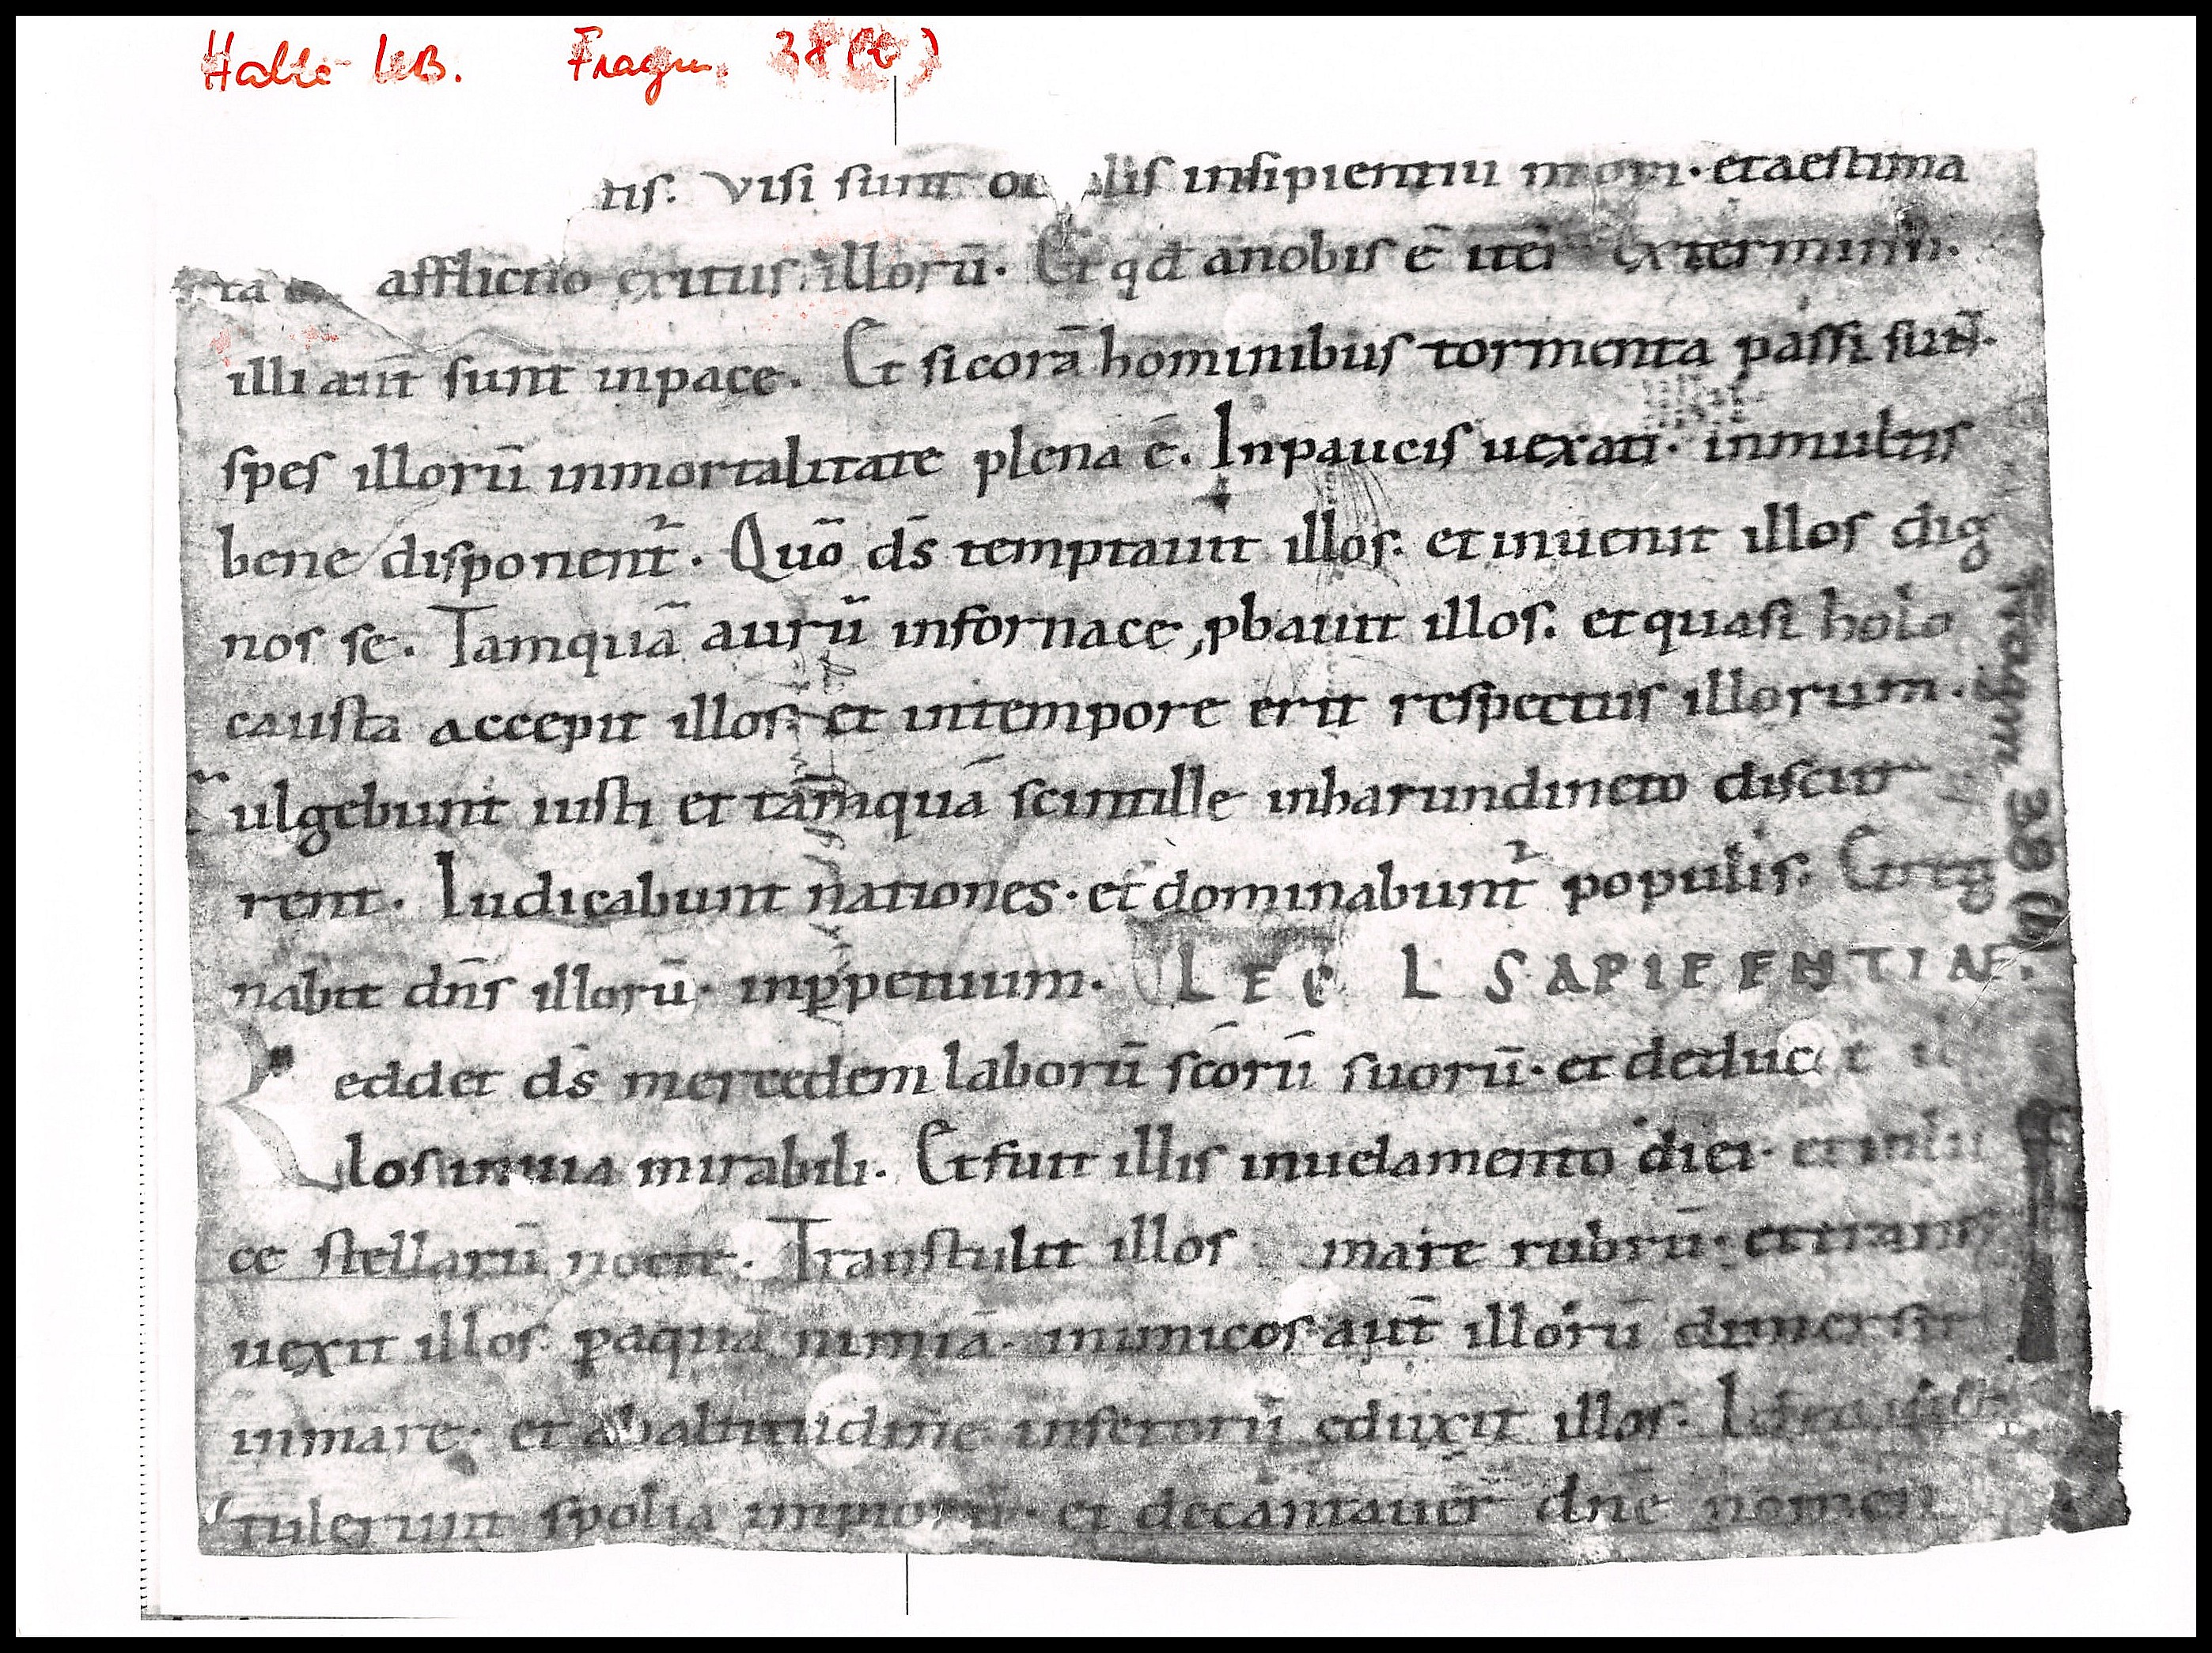 Halle UB. Fragm. 38 (b)
tis. visi sunt oc lis insipientiu mori · et aestima
ta afflictio exitus illorū · Et qđ anobis ē itei exterminii ·
illi aūt sunt inpace. Et si corā hominibus tormenta passi sunt ·
spes illorū inmortalitate plena ē. Inpaucis uexati · inmultis
bene disponent᷑. Quō ds̄ temptauit illos. et inuenit illos dig
nos se. Tamquā aurū infornace pbauit illos. et quasi holo
causta accepit illos et intempore erit respectus illorum.
ulgebunt iusti et tāmquā scintille inharundineto discur
rent. Iudicabunt nationes · et dominabunt᷑ populis. Et reg
nabit dn̄s illorū · inꝑpetuum. LEC L SAPIEENTIAE.
Reddet ds̄ mercedem laborū sc̄orū suorū · et deducet il
los inuia mirabili. Et fuit illis inuelamento diei · et inlu
ce stellarū nocte. Transtulit illos mare rubrū · et trans
uexit illos ꝑaquā nimiā · inimicos aūt illorū dimersit
inmare · et abaltitudine inferorū eduxit illos. Ideo iusti
tulerunt spolia impiorū · et decantauer̄ dn̄e nomen
Fragm 38 (b)